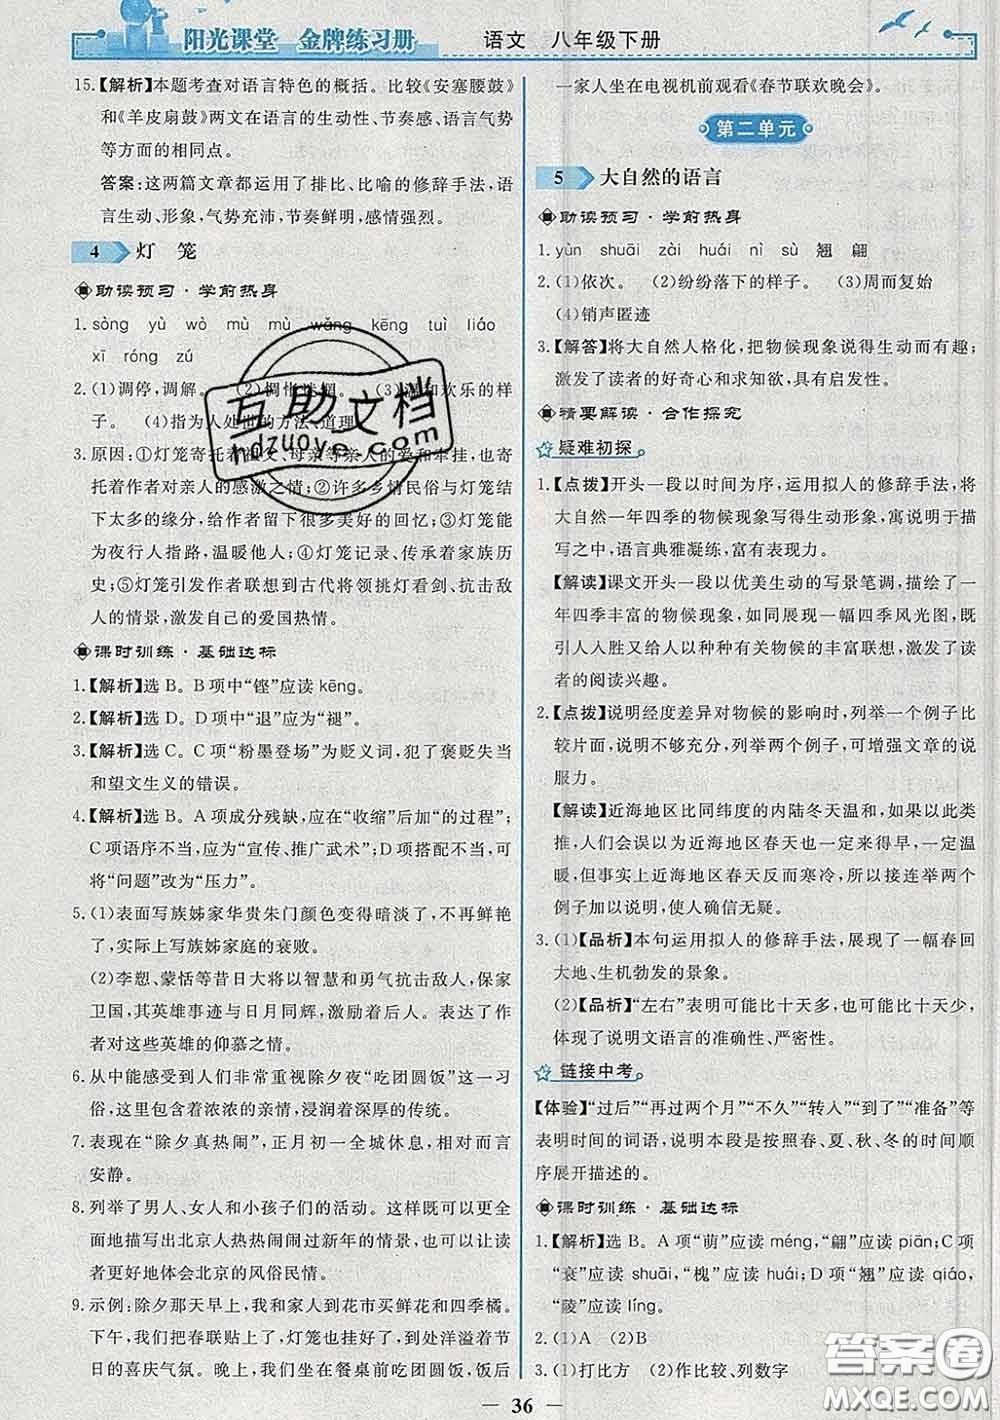 阳光课堂 金牌练习册 语文 八年级下册
15.【解析】本题考查对语言特色的概括。比较《安塞腰鼓》
和《羊皮扇鼓》两文在语言的生动性、节奏感、语言气势
等方面的相同点。
答案:这两篇文章都运用了排比、比喻的修辞手法,语
言生动、形象,气势充沛,节奏鲜明,感情强烈。
4 灯 笼
助读预习·学前热身
1. sòng yù wò mù mù wǎng kēng tuì liáo
xī róng zú
2.(1)调停,调解。 (2)惆怅迷惘。 (3)温和欢乐的样
子。 (4)指为人处世的方法、道理。
3.原因:①灯笼寄托着祖父、母亲等亲人的爱和牵挂,寄
托着作者对亲人的感激之情;②许多乡情民俗与灯笼结
下太多的缘分,给作者留下很多美好的回忆;③灯笼能
为夜行人指路,温暖他人;④灯笼记录、传承着家族历
史;⑤灯笼引发作者联想到古代将领挑灯看剑、抗击敌
人的情景,激发自己的爱国热情。
课时训练·基础达标
1.【解析】选 B。B 项中“铿”应读 kēng。
2.【解析】选 D。D 项中“退”应为“褪”。
3.【解析】选 C。C 项“粉墨登场”为贬义词,犯了褒贬失当
和望文生义的错误。
4.【解析】选 B。A 项成分残缺,应在“收缩”后加“的过程”;
C 项语序不当,应为“宣传、推广武术”;D 项搭配不当,可
将“问题”改为“压力”。
5.(1)表面写族姊家华贵朱门颜色变得暗淡了,不再鲜艳
了,实际上写族姊家庭的衰败。
(2)李愬、蒙恬等昔日大将以智慧和勇气抗击敌人,保家
卫国,其英雄事迹与日月同辉,激励后人。表达了作
者对这些英雄的仰慕之情。
6.从中能感受到人们非常重视除夕夜“吃团圆饭”这一习
俗,这里包含着浓浓的亲情,浸润着深厚的传统。
7.表现在“除夕真热闹”,正月初一全城休息,相对而言
安静。
8.列举了男人、女人和小孩子们的活动。这样写可以更全
面地描写出北京人热热闹闹过新年的情景,也可以让读
者更好地体会北京的风俗民情。
9.示例:除夕那天早上,我和家人到花市买鲜花和四季橘。
下午,我们把春联贴上了,灯笼挂起来了,到处洋溢着节日
的喜庆气氛。晚上,我们在餐桌前吃团圆饭,饭后
一家人坐在电视机前观看《春节联欢晚会》。
第二单元
5 大自然的语言
助读预习·学前热身
1. yùn shuāi zài huái nì sù 翘 翩
2.(1)依次。 (2)纷纷落下的样子。 (3)周而复始
(4)销声匿迹
3.【解答】将大自然人格化,把物候现象说得生动而有趣;
激发了读者的好奇心和求知欲,具有启发性。
精要解读·合作探究
疑难初探
1.【点拨】开头一段以时间为序,运用拟人的修辞手法,将
大自然一年四季的物候现象写得生动形象,寓说明于描
写之中,语言典雅凝练,富有表现力。
【解读】课文开头一段以优美生动的写景笔调,描绘了一
年四季丰富的物候现象,如同展现一幅四季风光图,既
引人入胜又给人以种种有关物候的丰富联想,激发了读
者的阅读兴趣。
2.【点拨】说明经度差异对物候的影响时,列举一个例子比
较片面,说明不够充分,列举两个例子,可增强文章的说
服力。
【解读】近海地区比同纬度的内陆冬天温和,如果以此类
推,人们就会以为近海地区春天也一定来得早、一定温
暖,但事实上近海地区春天反而寒冷,所以接连举两个
例子加以说明,使人确信无疑。
3.(1)【品析】本句运用拟人的修辞手法,展现了一幅春回
大地、生机勃发的景象。
(2)【品析】“左右”表明可能比十天多,也可能比十天少,
体现了说明文语言的准确性、严密性。
链接中考
【体验】“过后”“再过两个月”“不久”“转入”“到了”“准备”等
表明时间的词语,说明本段是按照春、夏、秋、冬的时间顺
序展开描述的。
课时训练·基础达标
1.【解析】选 B。A 项“萌”应读 méng,“翩”应读 piān;C 项
“衰”应读 shuāi,“槐”应读 huái;D 项“翘”应读 qiáo,
“陵”应读 líng。
2.(1)A (2)B
3.(1)打比方 (2)作比较、列数字
36
互助文档
hdzuoye.com
答案圈
MXQE.COM